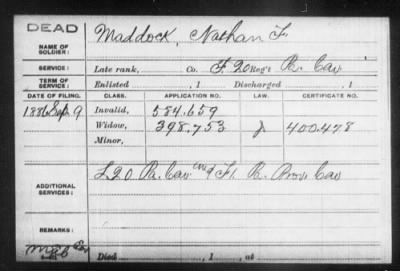 DEAD
NAME OF SOLDIER: Maddock, Nathan F.
SERVICE: Late rank, Co. F, 20 Reg't Pa. Cav
TERM OF SERVICE: Enlisted , 1 Discharged , 1
DATE OF FILING. CLASS. APPLICATION NO. LAW. CERTIFICATE NO.
1886 Sep. 9 Invalid, 584.659
Widow, 398.753 J 400.478
Minor,
ADDITIONAL SERVICES: L 20 Pa. Cav and F 1. Pa. Prov. Cav
REMARKS:
Died , 1 , at